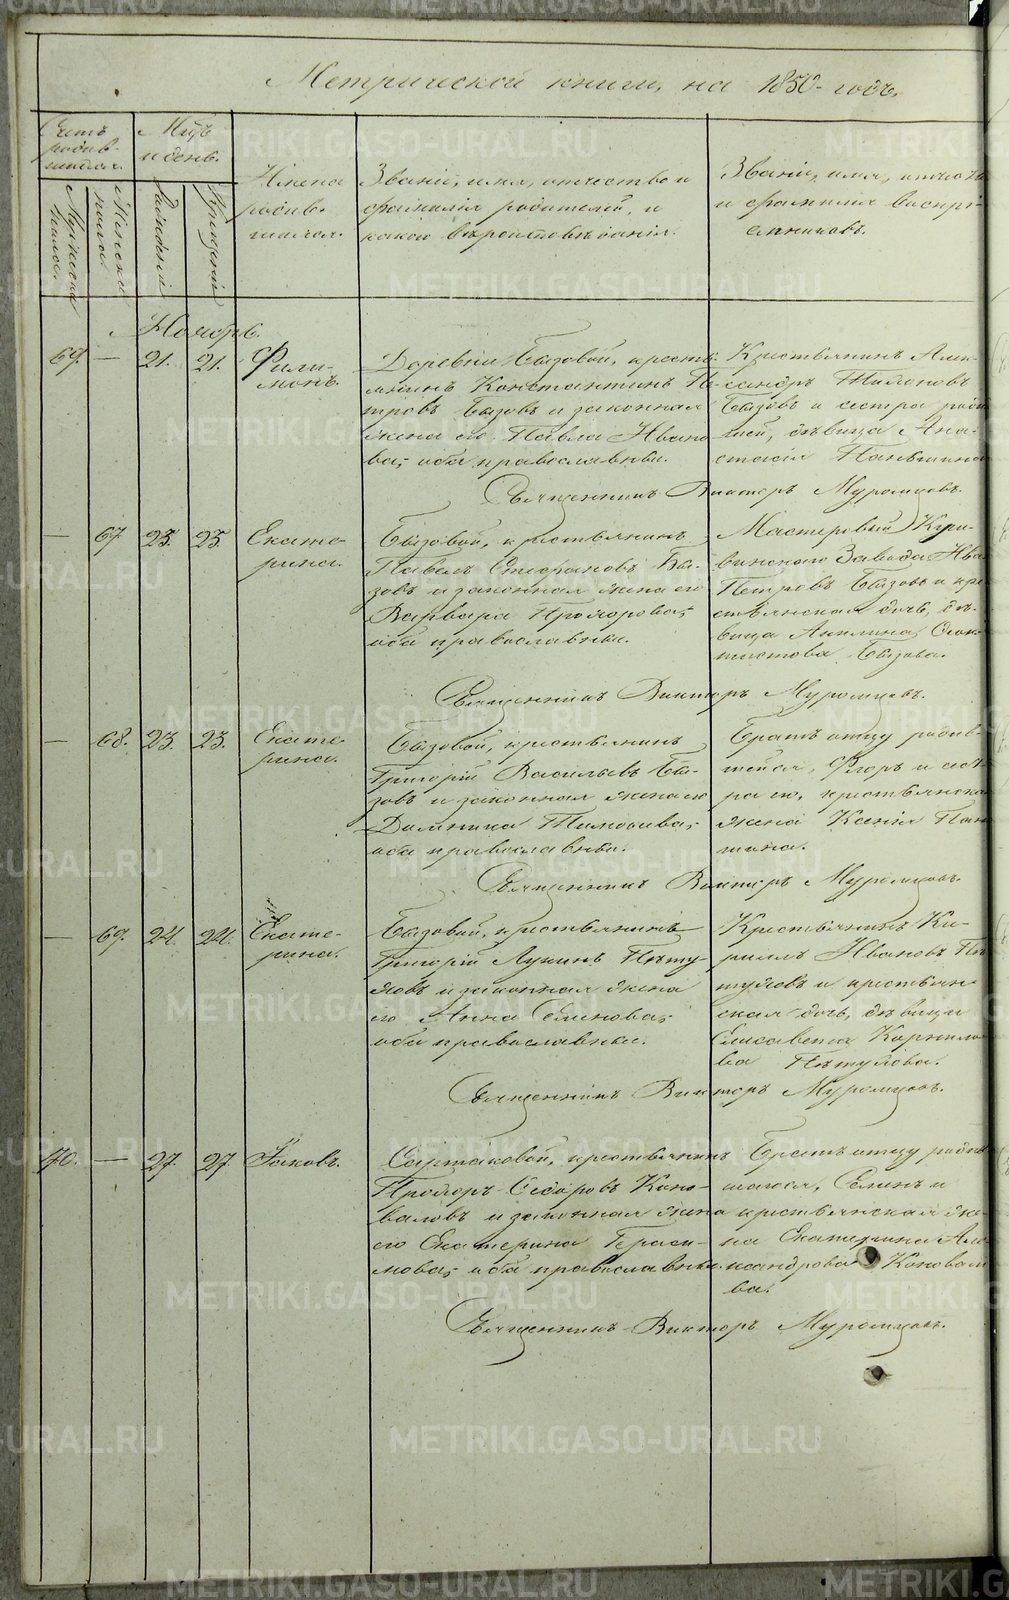 Метрической книги, на 1850 годъ.
Счетъ родив-
шихся.
Мужеска
пола.
Женска
пола.
Мѣс.
и день.
Рожденія
Крещенія
Имена
родив-
шихся.
Званіе, имя, отчество и
фамилія родителей, и
какого вѣроисповѣданія.
Званіе, имя, отчество
и фамилія воспрі-
емниковъ.
Ноябрь.
69. — 21. 21. Фили-
монъ.
Деревни Бызовой, кресть-
янинъ Константинъ Пе-
тровъ Бызовъ и законная
жена его Павла Ивано-
ва, оба православные.
Крестьянинъ Алек-
сандръ Тимоновъ
Бызовъ и сестра родив-
шей, дѣвица Ана-
стасія Паньшина
Священникъ Викторъ Муромцовъ.
— 67 23. 23. Екате-
рина.
Бызовой, крестьянинъ
Павелъ Стефановъ Бы-
зовъ и законная жена его
Варвара Прохорова,
оба православные.
Мастеровый
Завода Ива
Петровъ Бызовъ и кре-
стьянская дочь, дѣ-
вица Акилина
Бызова.
Священникъ Викторъ Муромцовъ.
— 68. 23. 23. Екате-
рина.
Бызовой, крестьянинъ
Григорій Васильевъ Бы-
зовъ и законная жена его
Домника Тимофеева,
оба православные.
Братъ отцу родив-
шейся, Флоръ и сест-
ра его, крестьянская
жена Ксенія Пань-
шина.
Священникъ Викторъ Муромцовъ.
— 69. 24. 24. Екате-
рина.
Бызовой, крестьянинъ
Григорій Лукинъ Пѣту-
ховъ и законная жена
его Анна Семенова,
оба православные.
Крестьянинъ Ки-
риллъ Ивановъ Пѣ-
туховъ и крестьян-
ская дочь, дѣвица
Елисавета Корнило-
ва Пѣтухова.
Священникъ Викторъ Муромцовъ.
70. — 27. 27. Іаковъ.
Сартаковой, крестьянинъ
Прохоръ Сидоровъ Коно-
валовъ и законная жена
его Екатерина Гераси-
мова, оба православные.
Братъ отцу родив-
шагося, Семенъ и
крестьянская же-
на Екатерина Але-
ксандрова Коновало-
ва.
Священникъ Викторъ Муромцовъ.
METRIKI.GASO-URAL.RU